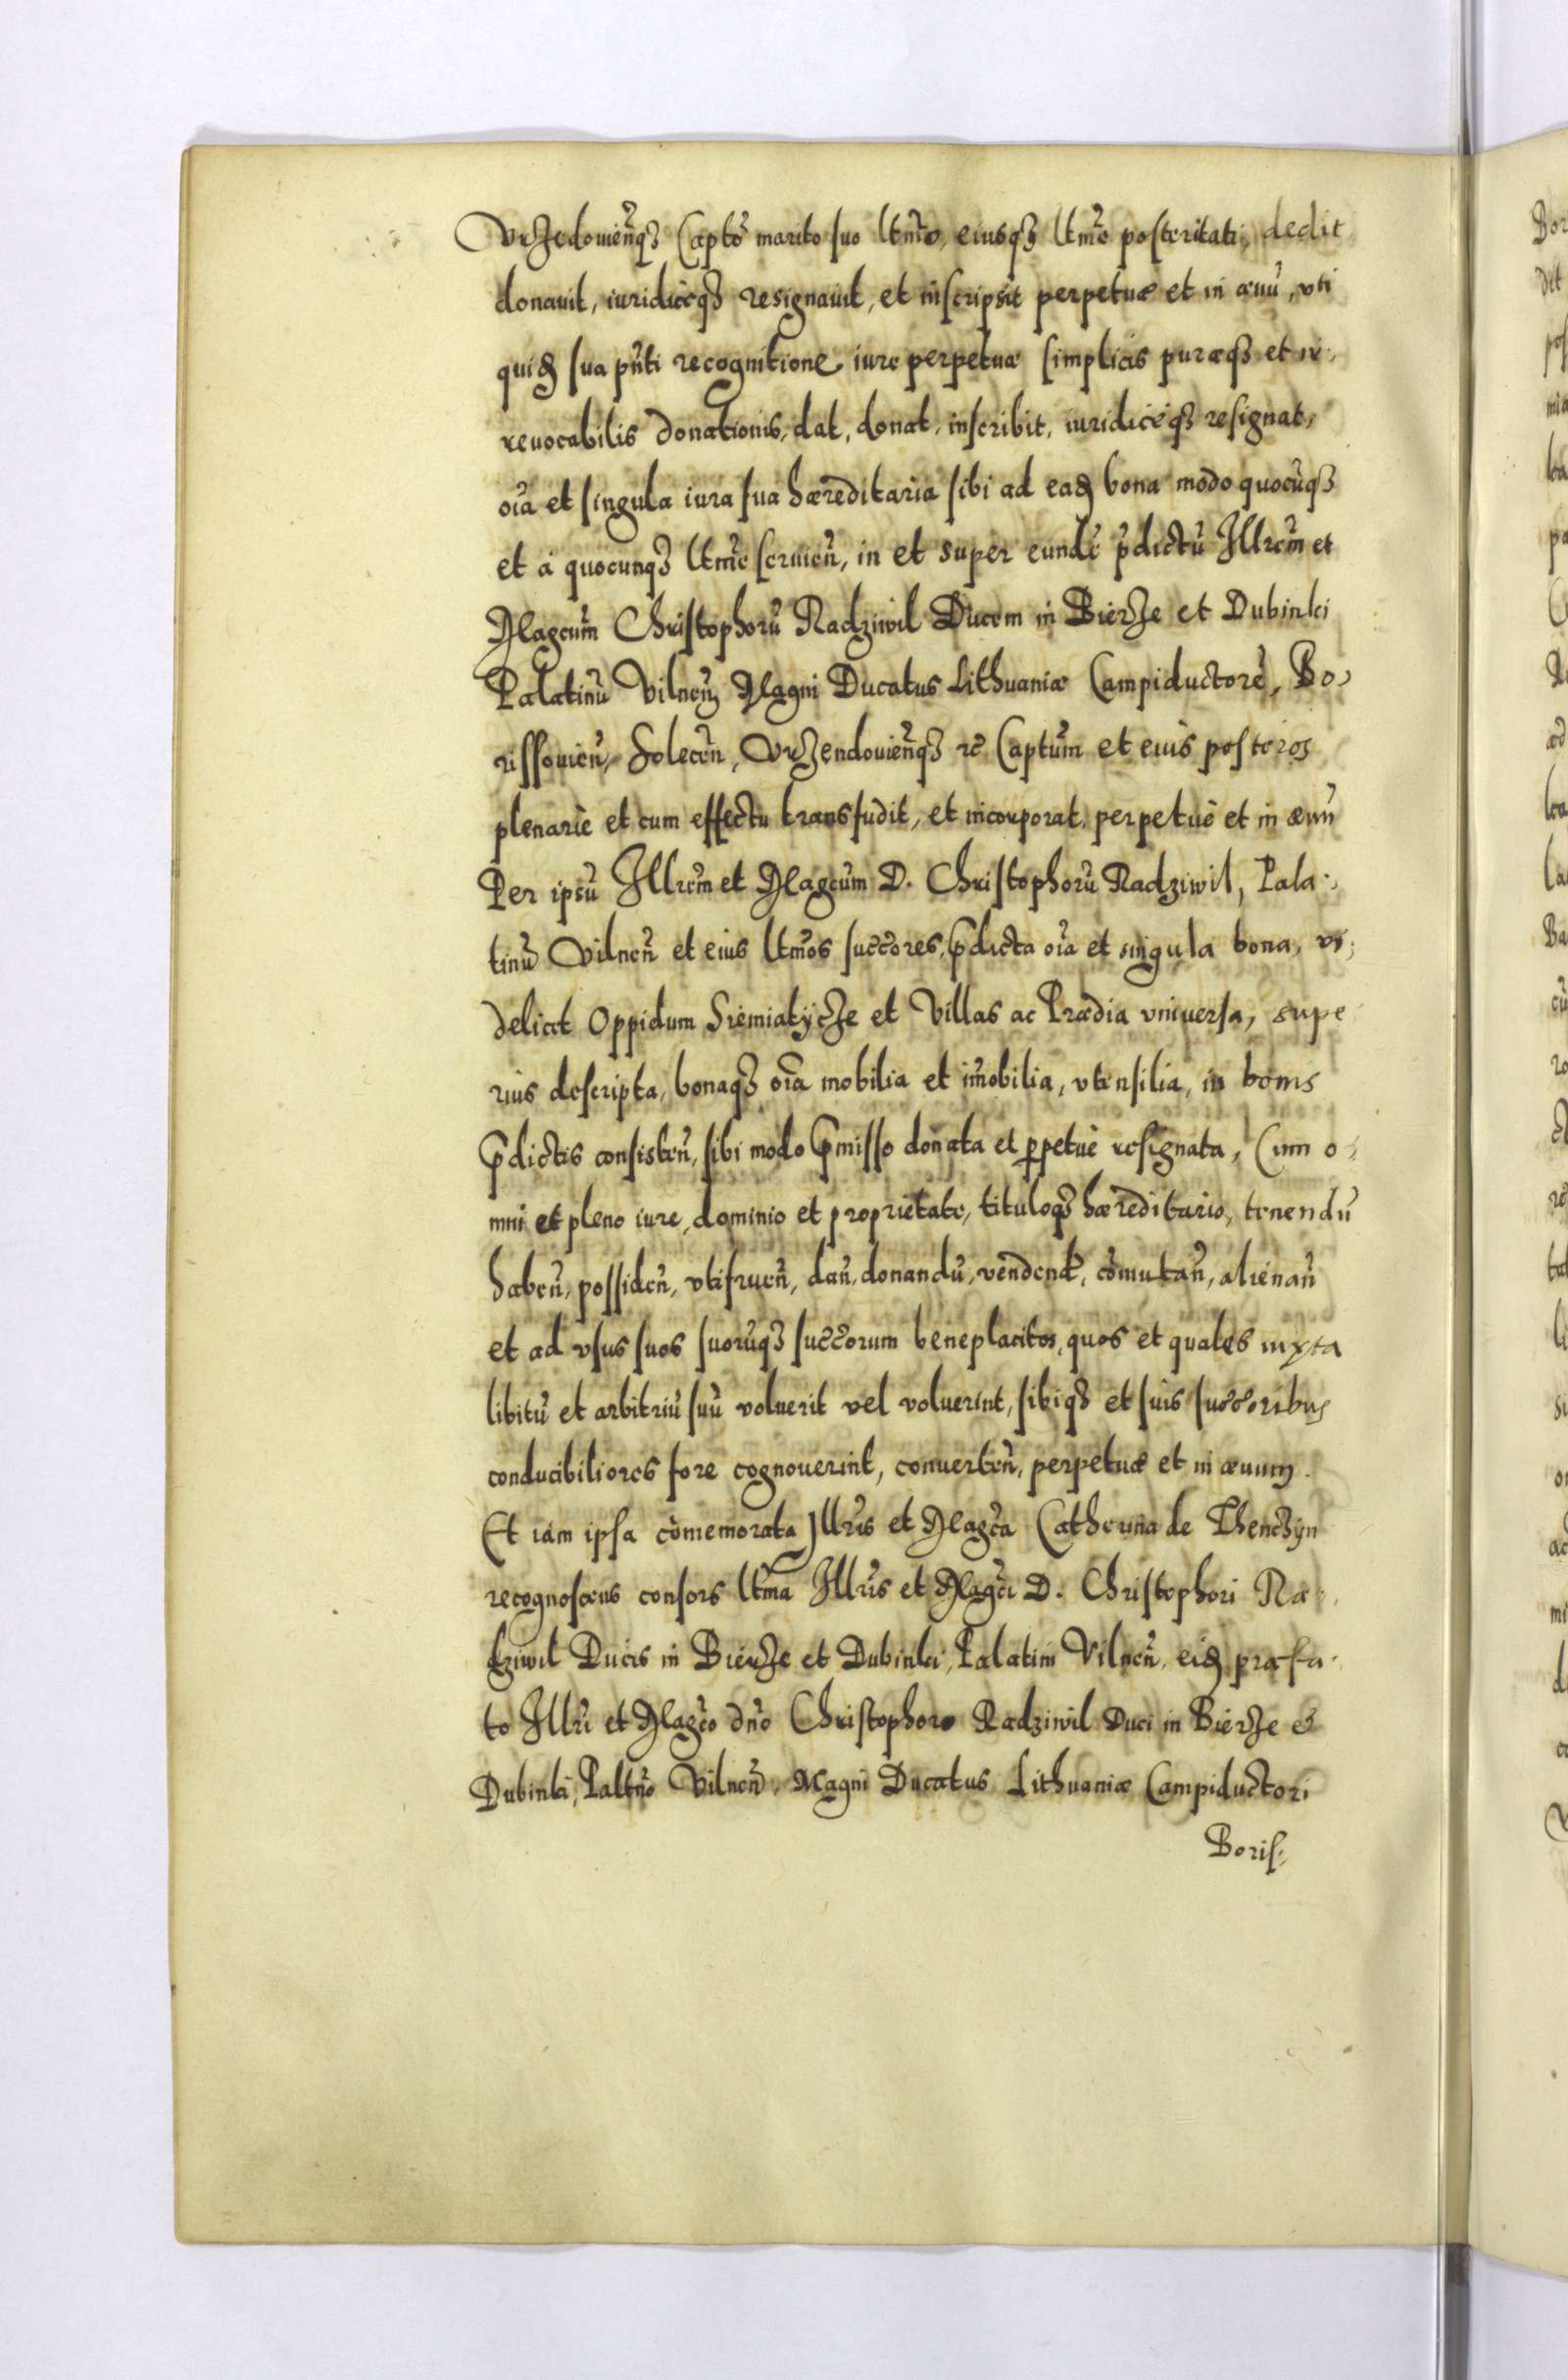 Vrzedovien̄q₃ Capto͂ marito suo ltm̄o, eiusq₃ ltm̄e posteritati, dedit
donauit, iuridiceq₃ resignauit, et inscripsit perpetuæ et in æuū, vti
quidē sua pn̄ti recognitione iure perpetuæ simplicis puræq₃ et ir,
reuocabilis donationis, dat, donat, inscribit, iuridiceq₃ resignat,
oīa et singula iura sua hæreditaria sibi ad eadē bona modo quocūq₃
et à quocunq₃ ltm̄e seruien̄, in et super eundē p̄dictū Illrēm et
Magcūm Christophorū Radziwil Ducem in Bierze et Dubinki
Palatinū Vilnen̄ Magni Ducatus Lithuaniæ Campiductorē, Bo,
rissouien̄, Solecen̄, Vrzendouien̄q₃ rc̄ Captūm et eius posteros
plenariè et cum effectu transfudit, et incorporat, perpetuè et in æuū
Per ipsū Illrēm et Magcūm D. Christophorū Radziwil, Pala,
tinū Vilnen̄ et eius ltm̄os succ̄ores, p̄dicta oīa et singula bona, vi,
delicet Oppidum Siemiatycze et Villas ac Prædia vniuersa, supe
rius descripta, bonaq₃ oīa mobilia et im̄obilia, vtensilia, in bonis
p̄dictis consisten̄, sibi modo p̄misso donata et ꝑpetuè resignata, Cum o,
mni et pleno iure, dominio et proprietate, tituloq₃ hæreditario, tenendū
haben̄, possiden̄, vtifruen̄, dan̄, donandū, vendend, com̄utan̄, alienan̄
et ad vsus suos suorūq₃ succ̄orum beneplacitos, quos et quales iuxta
libitū et arbitriū suū voluerit vel voluerint, sibiq₃ et suis succ̄oribus
conducibiliores fore cognouerint, conuerten̄, perpetuæ et in æuum.
Et iam ipsa com̄emorata Illrīs et Magc̄a Catherina de Thenczyn
recognoscens consors ltm̄a Illrīs et Magc̄i D. Christophori Ra,
dziwil Ducis in Bierze et Dubinki, Palatini Vilnen̄, eidē præfa,
to Illrī et Magc̄o dn̄o Christophoro Radziwil Duci in Bierze &
Dubinki, Paltn̄o Vilnen̄, Magni Ducatus Lithuaniæ Campiductori
Boris,